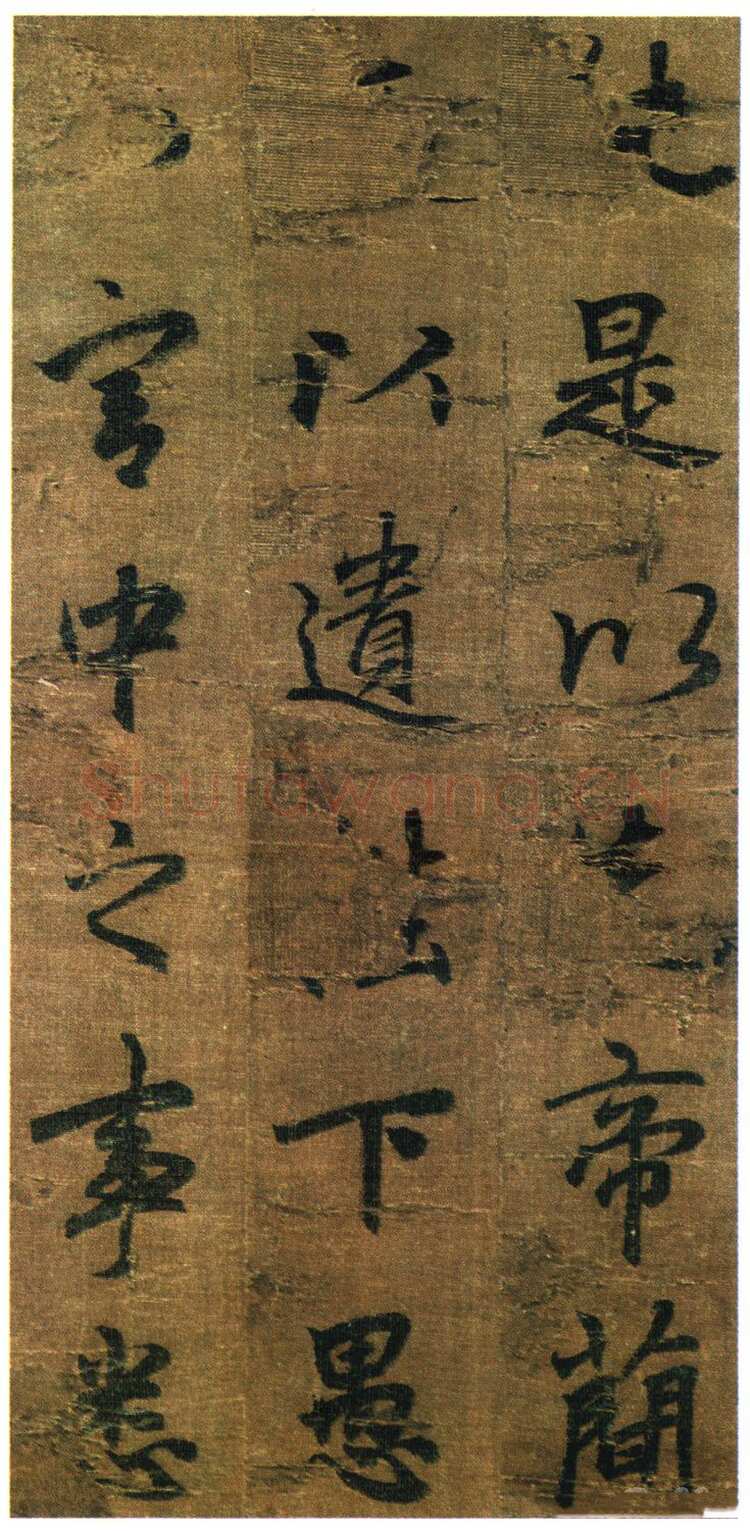 純是以先帝簡
以遺陛下愚
宮中之事悉
Shufawang.CN